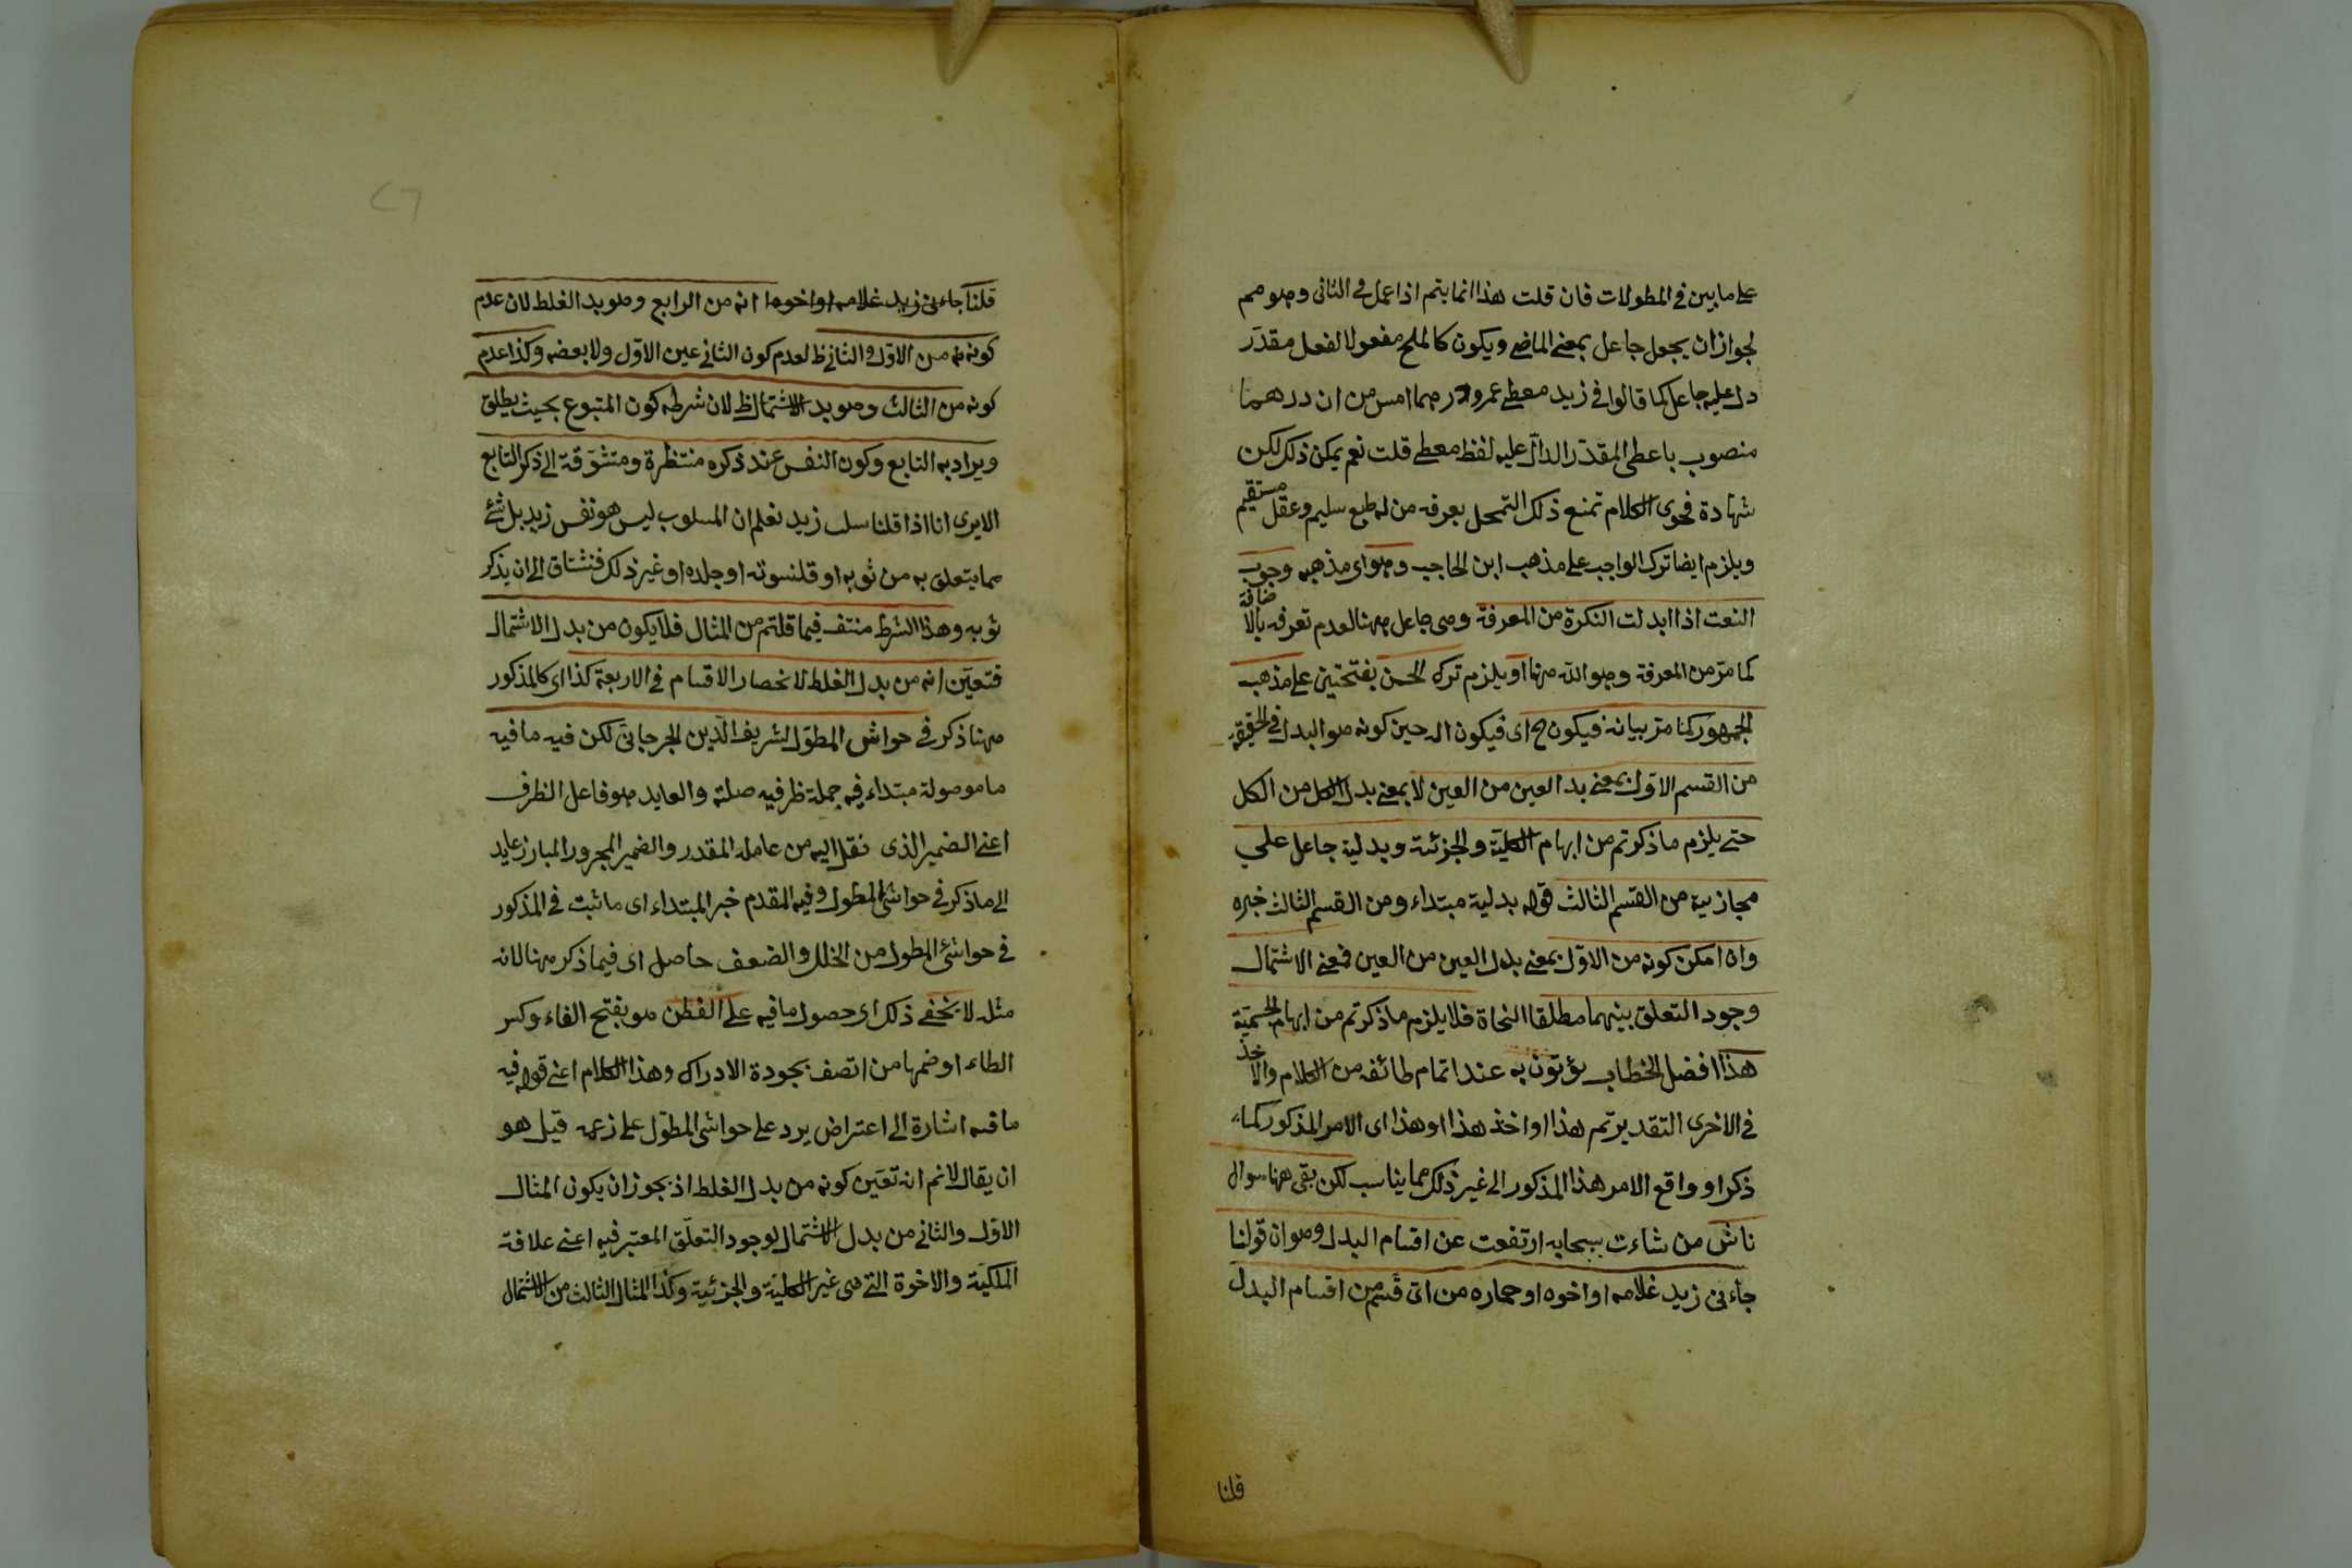 على ما بين في المطولات فان قلت هذا انما يتم اذا عمل في الثاني وهو مم
لجواز ان يجعل جاعل بمعنى الماضي ويكون كالملح مفعولا لفعل مقدر
دل عليه جاعل كما قالوا في زيد معطي عمرو درهما امس من ان درهما
منصوب باعطى المقدر الدال عليه لفظ معطي قلت نعم يمكن ذلك لكن
شهادة فحوى الكلام تمنع ذلك التمحل يعرفه من له طبع سليم وعقل مستقيم
ويلزم ايضا ترك الواجب على مذهب ابن الحاجب وهو اى مذهبه وجوب
النعت اذا ابدلت النكرة من المعرفة وهى جاعل ههنا لعدم تعرفه بالاضافة
كما مر من المعرفة وهو الله ههنا او يلزم ترك الحسن بفتحتين على مذهب
الجمهور كما مر بيانه فيكون ح اى فيكون الـ حين كونه هو البدل في الحقيقة
من القسم الاول بمعنى بدل العين من العين لا بمعنى بدل الكل من الكل
حتى يلزم ما ذكرتم من ابهام الكلية والجزئية وبدلية جاعل على
مجازيته من القسم الثالث قوله بدلية مبتداء ومن القسم الثالث خبره
وان امكن كونه من الاول بمعنى بدل العين من العين فمعنى الاشتمال
وجود التعلق بينهما مطلقا النحاة فلا يلزم ما ذكرتم من ابهام الجسمية
هذا افضل الخطاب يؤتون به عند اتمام طائفه من الكلام والاخذ
في الاخرى التقدير تم هذا او اخذ هذا او هذا اى الامر المذكور كما
ذكر او واقع الامر هذا المذكور الى غير ذلك مما يناسب لكن بقى ههنا سوال
ناش من شاءت بسحابه ارتفعت عن اقسام البدل وهو ان قولنا
جاءنى زيد غلامه او اخوه او حماره من اى قسم من اقسام البدل
قلنا
قلنا جاءنى زيد غلامه او اخوه انه من الرابع وهو بدل الغلط لان عدم
كونه من الاول والثاني ظ لعدم كون الثاني عين الاول ولا بعضه وكذا عدم
كونه من الثالث وهو بدل الاشتمال ظ لان شرطه كون المتبوع بحيث يطلق
ويراد به التابع وكون النفس عند ذكره منتظرة ومتشوقة الى ذكر التابع
الا يرى انا اذا قلنا سلب زيد نعلم ان المسلوب ليس هو نفس زيد بل شئ
مما يتعلق به من ثوبه او قلنسوته او جلده او غير ذلك فنشتاق الى ان يذكر
ثوبه وهذا الشرط منتف فيما قلتم من المثال فلا يكون من بدل الاشتمال
فتعين انه من بدل الغلط لانحصار الاقسام في الاربعة كذا اى كالمذكور
ههنا ذكر في حواشى المطول لشريف الدين الجرجانى لكن فيه ما فيه
ما موصولة مبتداء فيه جملة ظرفيه صلته والعايد هو فاعل الظرف
اعنى الضمير الذى نقل اليه من عامله المقدر والضمير المجرور البارز عايد
الى ما ذكر في حواشى المطول وفيه المقدم خبر المبتداء اى ما ثبت في المذكور
في حواشى المطول من الخلل والضعف حاصل اى فيما ذكر ههنا لانه
مثله لا يخفى ذلك اى حصول ما فيه على الفطن هو بفتح الفاء وكسر
الطاء او ضمها من اتصف بجودة الادراك وهذا الكلام اعنى قوله فيه
ما فيه اشارة الى اعتراض يرد على حواشى المطول على زعمه قيل هو
ان يقال لانم انه تعين كونه من بدل الغلط اذ يجوز ان يكون المثال
الاول والثاني من بدل الاشتمال لوجود التعلق المعتبر فيه اعنى علاقة
الملكية والاخوة التى هى غير الكلية والجزئية وكذا المثال الثالث من الاشتمال